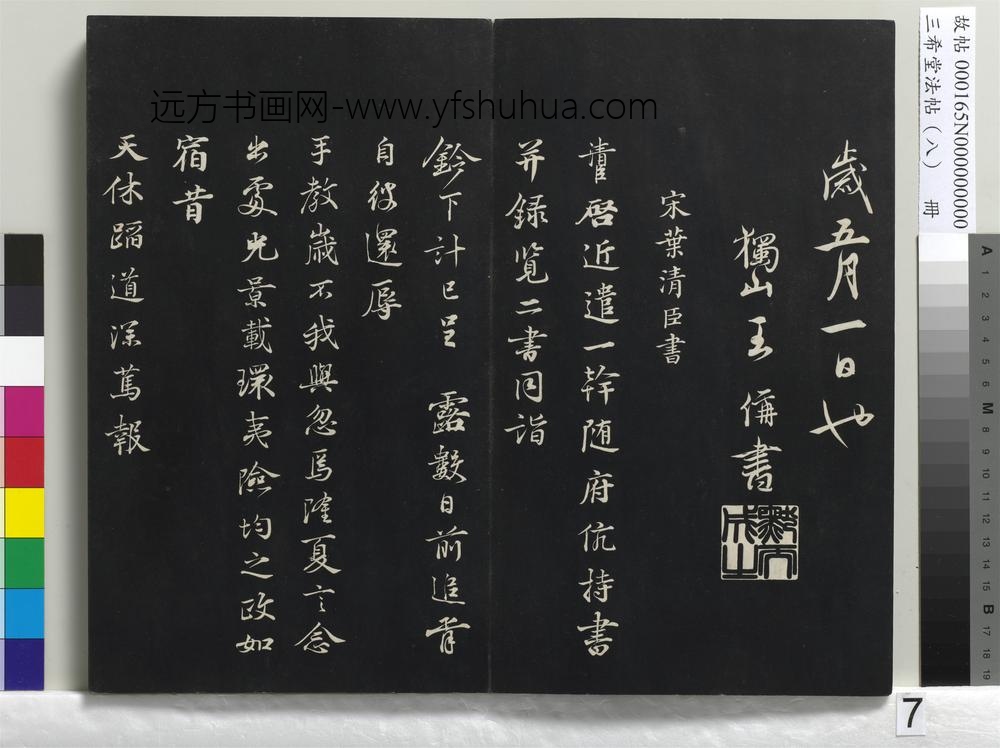 歲五月一日也
獨山王
書
宋葉清臣書
清啓近遣一幹随府伉持書
并録覽二書同詣
鈴下計已呈 露數日前追胥
自彼還辱
手教歲不我與忽焉隆夏言念
出處光景載環夷險均之政如
宿昔
天休蹈道深篤報
远方书画网-www.yfshuhua.com
故帖 000165N000000000
三希堂法帖(八) 冊
7
A 1 2 3 4 5 6 M 8 9 10 11 12 13 14 15 B 17 18 19